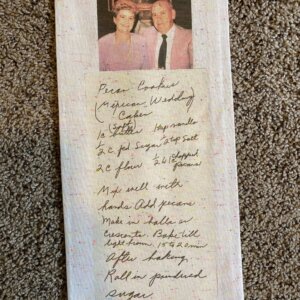 Pecan Cookies
(Mexican Wedding)
Cakes
(soft)
butter 1 tsp vanilla
1/2 C pd Sugar 1/2 tsp Salt
2 C flour 2 C (chopped
pecans
Mix well with
hands Add pecans
Make in balls or
crescents. Bake till
light brown. 15 to 20 min
After baking,
Roll in powdered
sugar